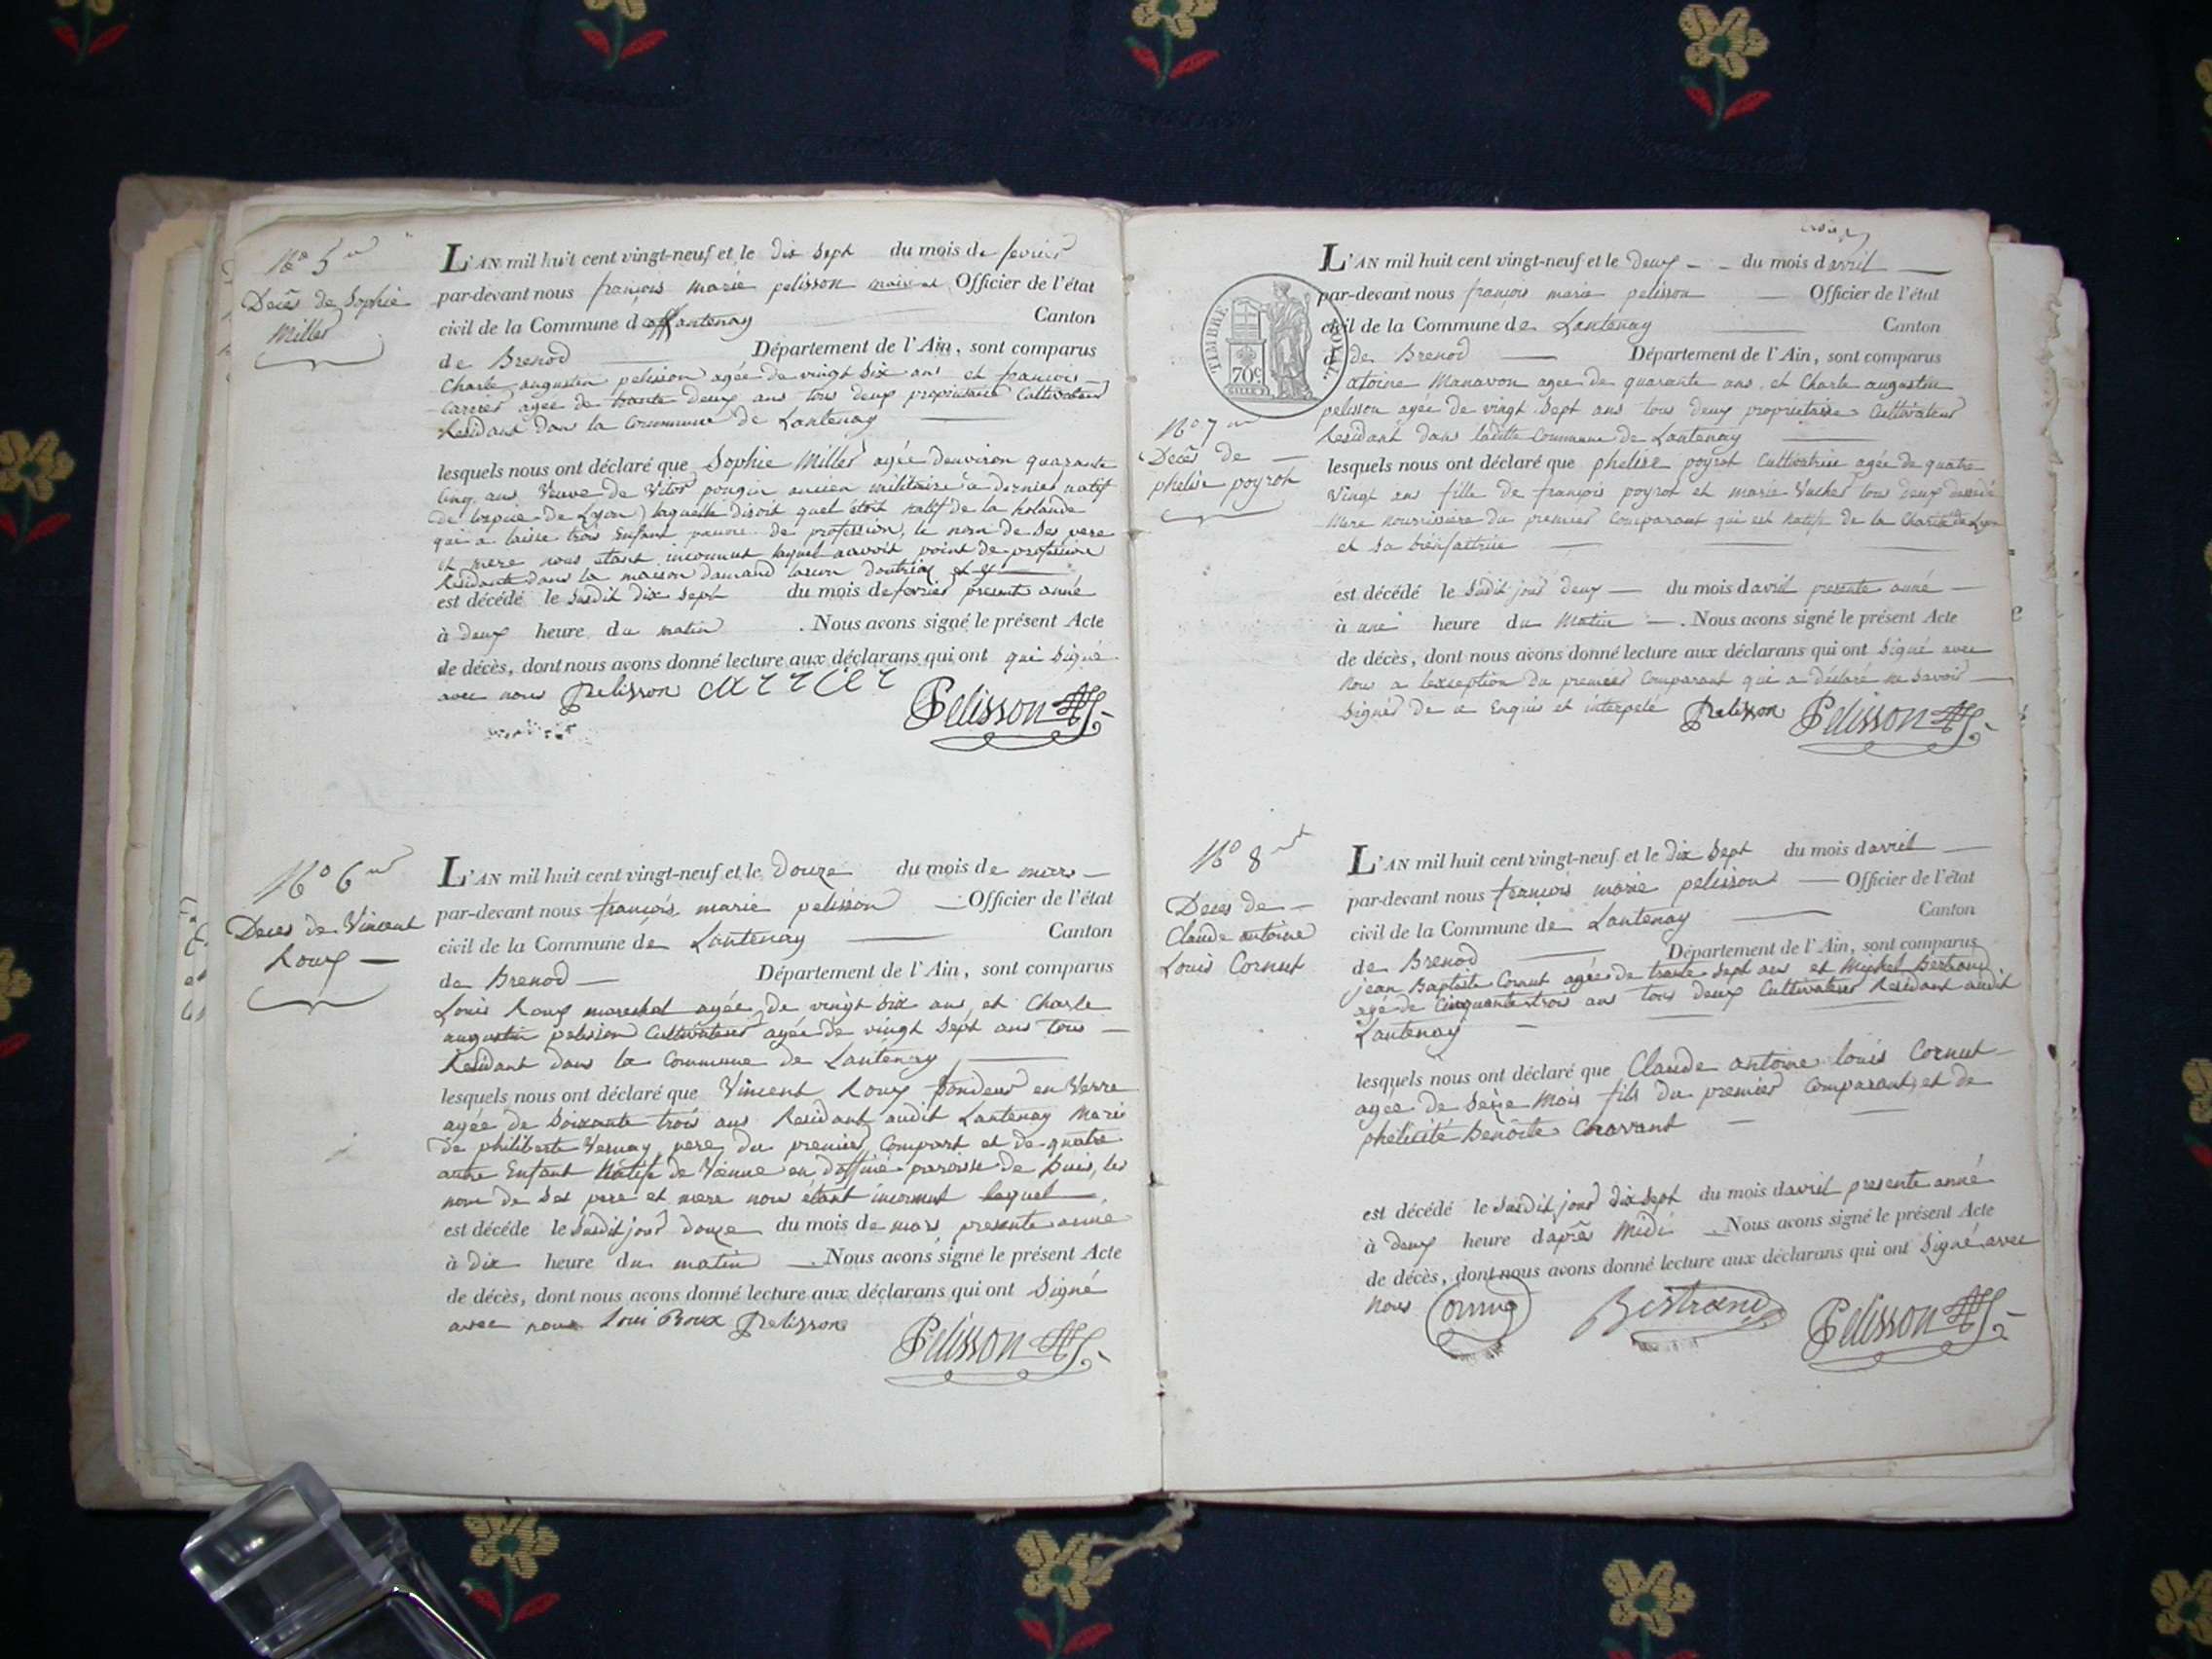 N° 5
Decês de Sophie
Miller
L'AN mil huit cent vingt-neuf et le dix sept du mois de fevrier
par-devant nous françois marie pelisson maire et Officier de l'état
civil de la Commune de Lantenay Canton
de Brenod Département de l'Ain, sont comparus
Charle augustin pelisson agée de vingt six ans et françois
Carrier agée de trante deux ans tous deux proprietaire Cultivateur
Residant dans la Commune de Lantenay
lesquels nous ont déclaré que Sophie Miller agée denviron quarante
Cinq ans Veuve de Vitor pougin ancien militaire a dernier natif
de de Lyon laquelle disoit quel étoit natif de la holande
qui a laisse trois Enfant de profession, le nom de Ses pere
et mere nous etant inconnut laquel navoit point de profession
Residante dans la maison
est décédé le Susdit dix Sept du mois de fevrier presente anné
à deux heure du matin . Nous avons signé le présent Acte
de décès, dont nous avons donné lecture aux déclarans qui ont qui Signé
avec nous Pelisson carrier
Pelisson
N° 6
Deces de Vincent
Roux
L'AN mil huit cent vingt-neuf et le Douze du mois de mars
par-devant nous françois marie pelisson Officier de l'état
civil de la Commune de Lantenay Canton
de Brenod Département de l'Ain, sont comparus
Louis Roux marechal agée de vingt Six ans, et Charle
augustin pelission Cultivateur agée de vingt Sept ans tous
Residant dans la Commune de Lantenay
lesquels nous ont déclaré que Vincent Roux fondeur en Verre
agée de Soixante trois ans Residant audit Lantenay Marie
De philiberte Vernay, pere du premier Compart et de quatre
autre Enfant Natife de Vienne en doffiné paroisse de les
nom de Ses pere et mere nous etant inconnut laquel
est décédé le Susdit jour douze du mois de mars presente anne
à dix heure du matin Nous avons signé le présent Acte
de décès, dont nous avons donné lecture aux déclarans qui ont Signé
avec nous Loui Roux Pelisson
Pelisson
L'AN mil huit cent vingt-neuf et le deux du mois d'avril
par-devant nous françois marie pelisson Officier de l'état
civil de la Commune de Lantenay Canton
de Brenod Département de l'Ain, sont comparus
TIMBRE ROYAL.
70c
atoine Manavon agee de quarante ans et Charle augustin
pelisson agée de vingt Sept ans tous deux proprietaire Cultivateur
Residant dans laditte Commune de Lantenay
N° 7
Decês de
phelise poyrot
lesquels nous ont déclaré que phelise poyrot Cultivatrice agée de quatre
Vingt ans fille de françois poyrot et marie Vucher tous deux decedé
Mere nourrissiere du premier Comparant qui est natife de la Charité de Lyon
et Sa bienfaitrice
est décédé le Sudit jour deux du mois d'avril presente anné
à une heure du Matin . Nous avons signé le présent Acte
de décès, dont nous avons donné lecture aux déclarans qui ont Signé avec
nous a lexception du premier Comparant qui a déclaré ne Savoir
Signer de ce Enquis et interpelé Pelisson Pelisson
N° 8
Deces de
Claude antoine
Louis Cornut
L'AN mil huit cent vingt-neuf et le dix Sept du mois d'avril
par-devant nous françois marie pelisson Officier de l'état
civil de la Commune de Lantenay Canton
de Brenod Département de l'Ain, sont comparus
jean Baptiste Cornut agée de trante Sept ans et Michel Bertrand
agé de Cinquante trois ans tous deux Cultivateur Residant audit
Lantenay
lesquels nous ont déclaré que Claude antoine louis Cornut
agée de Seize Mois fils du premier Comparant, et de
phelicité Benoite Chavant
est décédé le Susdit jour dix Sept du mois d'avril presente anné
à deux heure d'après Midi Nous avons signé le présent Acte
de décès, dont nous avons donné lecture aux déclarans qui ont Signé avec
nous Bertrand Pelisson